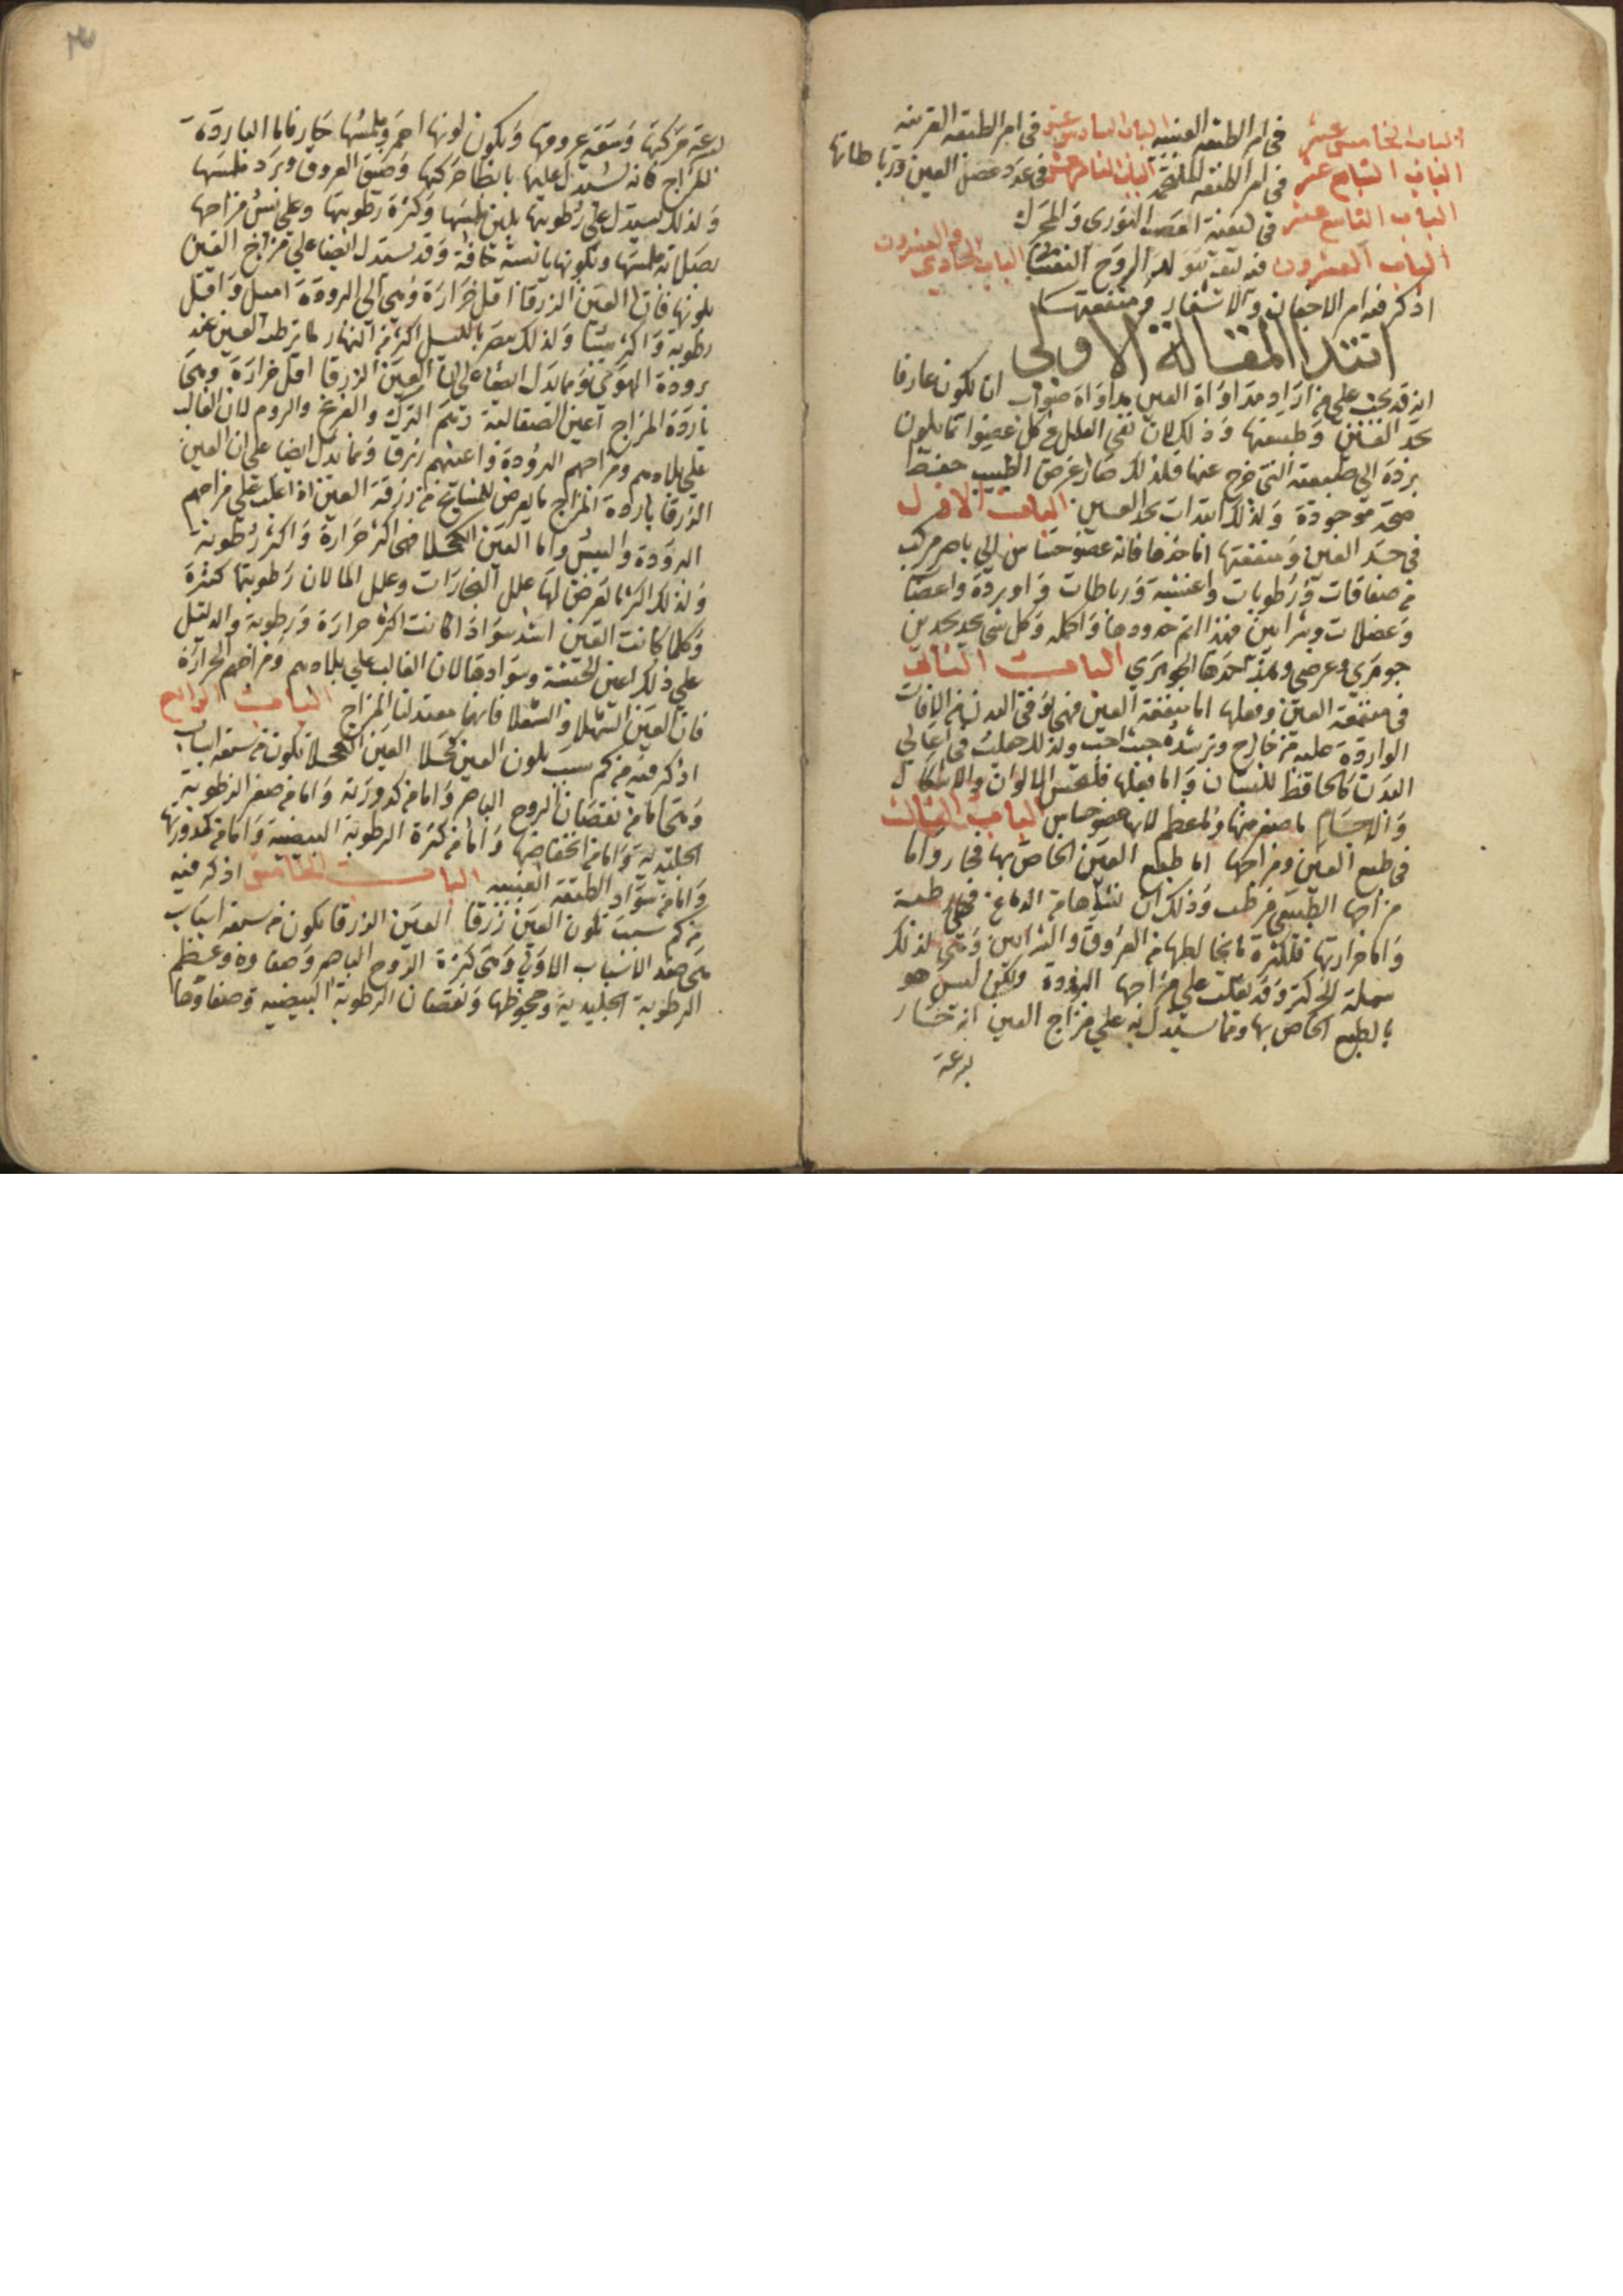 الباب الخامس عشر في امر الطبقه العنبيه الباب السادس عشر في امر الطبقه القرنيه
الباب السابع عشر في امر الطبقه الملتحمه الباب الثامن عشر في عدد عضل العين ورباطاتها
الباب التاسع عشر في كيفية العصب النوري والمحرك
الباب العشرون فيه كيف يتولد الروح النفساني الباب الحادي والعشرون
اذكر فيه امر الاجفان والاشفار ومنفعتهما
ابتدا المقالة الاولى
انه قد يجب على من اراد مداواة العين مداواة صواب ان يكون عارفا
بحد العين وطبيعتها وذلك لان نفي العلل عن كل عضو انما يكون
برده الى طبيعته التي خرج عنها فلذلك صار غرض الطبيب حفظ
صحة موجودة ولذلك ابتدات بحد العين الباب الاول
في حد العين ومنفعتها اما حدها فانه عضو حساس الي باصر مركب
من صفاقات ورطوبات واغشية ورباطات واوردة واعصاب
وعضلات وشرايين فهذا اتم حدودها واكمله وكل شي يحد بحدين
جوهري وعرضي وهذا حدها الجوهري الباب الثاني
في منفعة العين وفعلها اما منفعة العين فهي توقي البدن من الافات
الواردة عليه من خارج وترشده حيث احب ولذلك جعلت في اعالي
البدن كالحافظ للبستان واما فعلها فلتحس الالوان والاشكال
والاجسام ما صغر منها وما عظم لانها عضو حساس الباب الثالث
في طبع العين ومزاجها اما طبع العين الخاص بها فحار واما
مزاجها الطبيعي فرطب وذلك ان نشاها من الدماغ فهي رطبة
واما حرارتها فلكثرة ما يخالطها من العروق والشرايين وهي لذلك
سهلة الحركة وقد يغلب على مزاجها البرودة ولكن ليس هو
بالطبع الخاص بها ومما يستدل به علي مزاج العين انه حار
سرعة
سرعة حركتها وسعة عروقها ويكون لونها احمر وملمسها حار فاما الباردة
المزاج فانه يستدل عليها بابطا حركتها وضيق العروق وبرد ملمسها
ولذلك يستدل على رطوبتها بلين ملمسها وكثرة رطوبتها وعلى يبس مزاجها
بصلابة ملمسها وتكونها يابسة جافة وقد يستدل ايضا على مزاج العين
بلونها فان العين الزرقا اقل حرارة وهي الى البرودة اميل واقل
رطوبة واكثر يبسا ولذلك تبصر بالليل اكثر من النهار لما ترطب العين عند
برودة الهوى ومما يدل ايضا على ان العين الزرقا اقل حرارة وهي
باردة المزاج اعين الصقالبة وهم الترك والفرنج والروم لان الغالب
على بلادهم ومزاجهم البرودة واعينهم زرق ومما يدل ايضا على ان العين
الزرقا باردة المزاج ما يعرض للمشايخ من زرقة العين اذا غلب على مزاجهم
البرودة واليبس واما العين الكحلا فهي اكثر حرارة واكثر رطوبة
ولذلك اكثر ما تعرض لها علل البخارات وعلل الما لان رطوبتها كثيرة
وكلما كانت العين اشد سوادا كانت اكثر حرارة ورطوبة والدليل
علي ذلك اعين الحبشة وسوادها لان الغالب علي بلادهم ومزاجهم الحرارة
فان العين الشهلا والشعلا فانهما معتدلتا المزاج الباب الرابع
اذكر فيه من كم سبب يكون العين كحلا العين الكحلا تكون من سبعة اسباب
وهي اما من نقصان الروح الباصر واما من كدورته واما من صغر الرطوبة
الجليدية واما من انخفاضها واما من كثرة الرطوبة البيضية واما من كدورتها
واما من سواد الطبقة العنبيه الباب الخامس اذكر فيه
من كم سبب تكون العين زرقا العين الزرقا تكون من سبعة اسباب
هي ضد الاسباب الاولي وهي كثرة الروح الباصر وصفاوه وعظم
الرطوبة الجليدية وجحوظها ونقصان الرطوبة البيضية وصفاوها